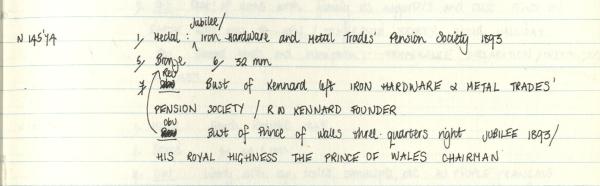 Jubilee/
N 145'74 1, Medal : Iron Hardware and Metal Trades' Pension Society 1893
5, Bronze 6, 32 mm
Rev
7, Bust of Kennard left IRON HARDWARE & METAL TRADES'
PENSION SOCIETY / R W KENNARD FOUNDER
obv
Bust of Prince of Wales three-quarters right JUBILEE 1893/
HIS ROYAL HIGHNESS THE PRINCE OF WALES CHAIRMAN